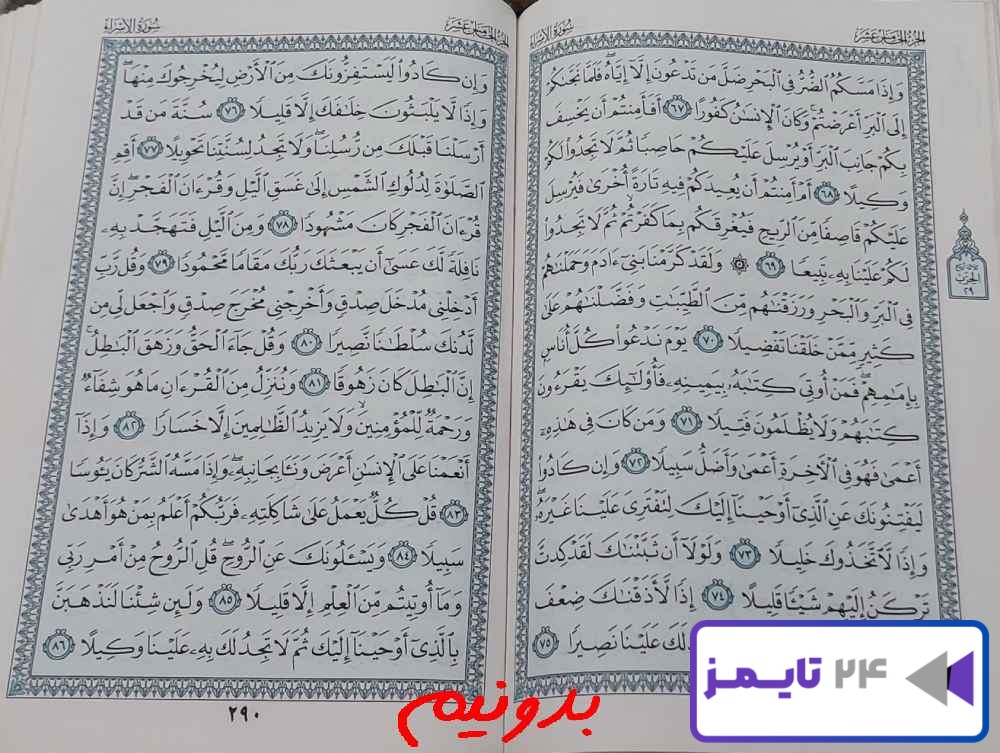 الجزء الخامس عشر
سورة الإسراء
وَإِذَا مَسَّكُمُ الضُّرُّ فِي الْبَحْرِ ضَلَّ مَن تَدْعُونَ إِلَّا إِيَّاهُ فَلَمَّا نَجَّىٰكُمْ
إِلَى الْبَرِّ أَعْرَضْتُمْ وَكَانَ الْإِنسَٰنُ كَفُورًا ٦٧ أَفَأَمِنتُمْ أَن يَخْسِفَ
بِكُمْ جَانِبَ الْبَرِّ أَوْ يُرْسِلَ عَلَيْكُمْ حَاصِبًا ثُمَّ لَا تَجِدُوا لَكُمْ
وَكِيلًا ٦٨ أَمْ أَمِنتُمْ أَن يُعِيدَكُمْ فِيهِ تَارَةً أُخْرَىٰ فَيُرْسِلَ
عَلَيْكُمْ قَاصِفًا مِّنَ الرِّيحِ فَيُغْرِقَكُم بِمَا كَفَرْتُمْ ثُمَّ لَا تَجِدُوا
لَكُمْ عَلَيْنَا بِهِ تَبِيعًا ٦٩ ۞ وَلَقَدْ كَرَّمْنَا بَنِي ءَادَمَ وَحَمَلْنَٰهُمْ
فِي الْبَرِّ وَالْبَحْرِ وَرَزَقْنَٰهُم مِّنَ الطَّيِّبَٰتِ وَفَضَّلْنَٰهُمْ عَلَىٰ
كَثِيرٍ مِّمَّنْ خَلَقْنَا تَفْضِيلًا ٧٠ يَوْمَ نَدْعُوا كُلَّ أُنَاسٍ
بِإِمَٰمِهِمْ فَمَنْ أُوتِيَ كِتَٰبَهُ بِيَمِينِهِ فَأُولَٰئِكَ يَقْرَءُونَ
كِتَٰبَهُمْ وَلَا يُظْلَمُونَ فَتِيلًا ٧١ وَمَن كَانَ فِي هَٰذِهِ
أَعْمَىٰ فَهُوَ فِي الْءَاخِرَةِ أَعْمَىٰ وَأَضَلُّ سَبِيلًا ٧٢ وَإِن كَادُوا
لَيَفْتِنُونَكَ عَنِ الَّذِي أَوْحَيْنَا إِلَيْكَ لِتَفْتَرِيَ عَلَيْنَا غَيْرَهُ
وَإِذًا لَّاتَّخَذُوكَ خَلِيلًا ٧٣ وَلَوْلَا أَن ثَبَّتْنَٰكَ لَقَدْ كِدتَّ
تَرْكَنُ إِلَيْهِمْ شَيْئًا قَلِيلًا ٧٤ إِذًا لَّأَذَقْنَٰكَ ضِعْفَ
لَكَ عَلَيْنَا نَصِيرًا ٧٥
الحزب
٢٩
الجزء الخامس عشر
سورة الإسراء
وَإِن كَادُوا لَيَسْتَفِزُّونَكَ مِنَ الْأَرْضِ لِيُخْرِجُوكَ مِنْهَا
وَإِذًا لَّا يَلْبَثُونَ خِلَٰفَكَ إِلَّا قَلِيلًا ٧٦ سُنَّةَ مَن قَدْ
أَرْسَلْنَا قَبْلَكَ مِن رُّسُلِنَا وَلَا تَجِدُ لِسُنَّتِنَا تَحْوِيلًا ٧٧ أَقِمِ
الصَّلَوٰةَ لِدُلُوكِ الشَّمْسِ إِلَىٰ غَسَقِ الَّيْلِ وَقُرْءَانَ الْفَجْرِ إِنَّ
قُرْءَانَ الْفَجْرِ كَانَ مَشْهُودًا ٧٨ وَمِنَ الَّيْلِ فَتَهَجَّدْ بِهِ
نَافِلَةً لَّكَ عَسَىٰ أَن يَبْعَثَكَ رَبُّكَ مَقَامًا مَّحْمُودًا ٧٩ وَقُل رَّبِّ
أَدْخِلْنِي مُدْخَلَ صِدْقٍ وَأَخْرِجْنِي مُخْرَجَ صِدْقٍ وَاجْعَل لِّي مِن
لَّدُنكَ سُلْطَٰنًا نَّصِيرًا ٨٠ وَقُلْ جَاءَ الْحَقُّ وَزَهَقَ الْبَٰطِلُ
إِنَّ الْبَٰطِلَ كَانَ زَهُوقًا ٨١ وَنُنَزِّلُ مِنَ الْقُرْءَانِ مَا هُوَ شِفَاءٌ
وَرَحْمَةٌ لِّلْمُؤْمِنِينَ وَلَا يَزِيدُ الظَّٰلِمِينَ إِلَّا خَسَارًا ٨٢ وَإِذَا
أَنْعَمْنَا عَلَى الْإِنسَٰنِ أَعْرَضَ وَنَـَٔا بِجَانِبِهِ وَإِذَا مَسَّهُ الشَّرُّ كَانَ يَـُٔوسًا
٨٣ قُلْ كُلٌّ يَعْمَلُ عَلَىٰ شَاكِلَتِهِ فَرَبُّكُمْ أَعْلَمُ بِمَنْ هُوَ أَهْدَىٰ
سَبِيلًا ٨٤ وَيَسْـَٔلُونَكَ عَنِ الرُّوحِ قُلِ الرُّوحُ مِنْ أَمْرِ رَبِّي
وَمَا أُوتِيتُم مِّنَ الْعِلْمِ إِلَّا قَلِيلًا ٨٥ وَلَئِن شِئْنَا لَنَذْهَبَنَّ
بِالَّذِي أَوْحَيْنَا إِلَيْكَ ثُمَّ لَا تَجِدُ لَكَ بِهِ عَلَيْنَا وَكِيلًا ٨٦
٢٩٠
بدونیم
۲۴ تایمز